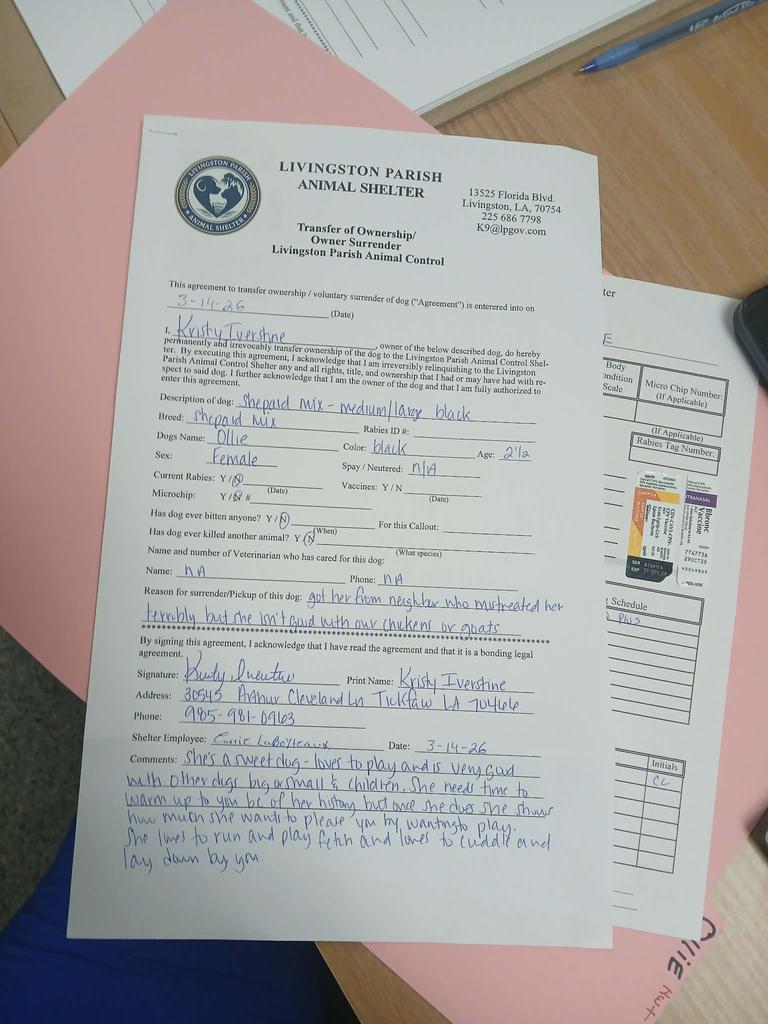 LIVINGSTON PARISH
ANIMAL SHELTER
LIVINGSTON PARISH
ANIMAL SHELTER
13525 Florida Blvd.
Livingston, LA, 70754
225 686 7798
K9@lpgov.com
Transfer of Ownership/
Owner Surrender
Livingston Parish Animal Control
This agreement to transfer ownership / voluntary surrender of dog ("Agreement") is enterered into on
3-14-26 (Date)
I, Kristy Iverstine, owner of the below described dog, do hereby
permanently and irrevocably transfer ownership of the dog to the Livingston Parish Animal Control Shel-
ter. By executing this agreement, I acknowledge that I am irreversibly relinquishing to the Livingston
Parish Animal Control Shelter any and all rights, title, and ownership that I had or may have had with re-
spect to said dog. I further acknowledge that I am the owner of the dog and that I am fully authorized to
enter this agreement.
Description of dog: Shepard mix - medium/large black
Breed: Shepard Mix Rabies ID #:
Dogs Name: Ollie Color: black Age: 2 1/2
Sex: Female Spay / Neutered: n/A
Current Rabies: Y / N (Date) Vaccines: Y / N (Date)
Microchip: Y / N #
Has dog ever bitten anyone? Y / N (When) For this Callout:
Has dog ever killed another animal? Y / N (What species)
Name and number of Veterinarian who has cared for this dog:
Name: nA Phone: nA
Reason for surrender/Pickup of this dog: got her from neighbor who mistreated her
terribly but she isn't good with our chickens or goats
By signing this agreement, I acknowledge that I have read the agreement and that it is a bonding legal
agreement.
Signature: Print Name: Kristy Iverstine
Address: 30545 Arthur Cleveland Ln Tickfaw LA 70466
Phone: 985-981-0963
Shelter Employee: Carrie LaBorteaux Date: 3-14-26
Comments: She's a sweet dog - loves to play and is very good
with other dogs big or small & children. She needs time to
warm up to you bc of her history but once she does she shows
how much she wants to please you by wanting to play.
She loves to run and play fetch and loves to cuddle and
lay down by you.
ter
E
Body
ondition
Scale
Micro Chip Number:
(If Applicable)
(If Applicable)
Rabies Tag Number:
INTRANASAL
Bbronc
Vaccine
774773A
29OCT26
Schedule
Plus
Initials
CL
Ollie